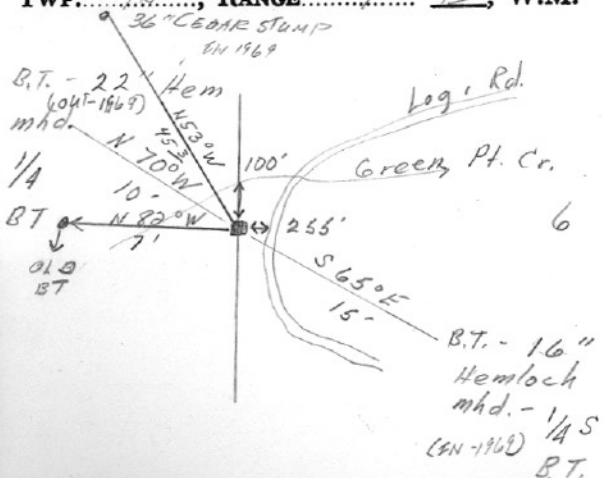 TWP. , RANGE , W.M.
36" CEDAR STUMP
IN 1969
B.T. - 22" Hem
(out-1969)
mhd.
1/4
BT
OLD
BT
N 53° W
N 70° W
10'
N 82° W
7'
100'
255'
Log. Rd.
Green Pt. Cr.
6
S 65° E
15'
B.T. - 16"
Hemloch
mhd. - 1/4 S
(IN-1969)
B.T.